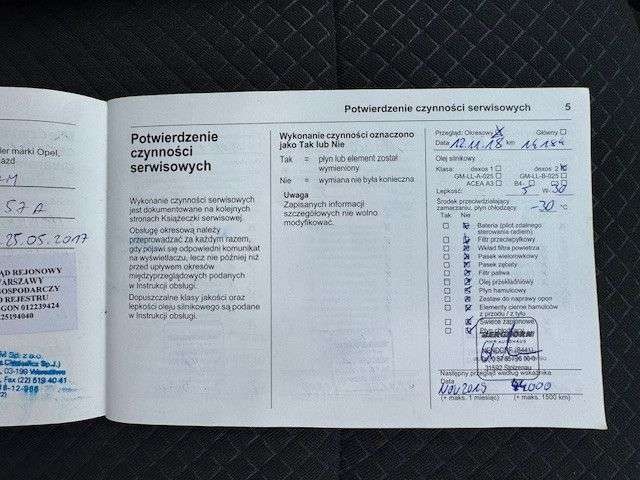 Potwierdzenie czynności serwisowych 5
ler marki Opel,
azd
57A
25.05.2017
ĄD REJONOWY
WARSZAWY
GOSPODARCZY
O REJESTRU
GON 012239424
25194040
03-199
Fax (22) 519 40 41
Potwierdzenie
czynności
serwisowych
Wykonanie czynności serwisowych
jest dokumentowane na kolejnych
stronach Książeczki serwisowej.
Obsługę okresową należy
przeprowadzać za każdym razem,
gdy pojawi się odpowiedni komunikat
na wyświetlaczu, lecz nie później niż
przed upływem okresów
międzyprzeglądowych podanych
w Instrukcji obsługi.
Dopuszczalne klasy jakości oraz
lepkości oleju silnikowego są podane
w Instrukcji obsługi.
Wykonanie czynności oznaczono
jako Tak lub Nie
Tak = płyn lub element został
wymieniony
Nie = wymiana nie była konieczna
Uwaga
Zapisanych informacji
szczegółowych nie wolno
modyfikować.
Przegląd: Okresowy Główny
Data 12.11.18 km 14184
Olej silnikowy
Klasa: dexos 1 dexos 2
GM-LL-A-025 GM-LL-B-025
ACEA A3 B4
Lepkość: 5 W- 30
Środek przeciwdziałający
zamarzaniu, płyn chłodzący -30 °C
Tak Nie
Bateria (pilot zdalnego
sterowania radiem)
Filtr przeciwpyłkowy
Wkład filtra powietrza
Pasek wielorowkowy
Pasek zębaty
Filtr paliwa
Olej przekładniowy
Płyn hamulcowy
Zestaw do naprawy opon
Elementy cierne hamulców
z przodu / z tyłu
Świece zapłonowe
31592 Stolzenau
Następny przegląd według wskaźnika
Data
Nov. 2019 44000
(+ maks. 1 miesiąc) (+ maks. 1500 km)